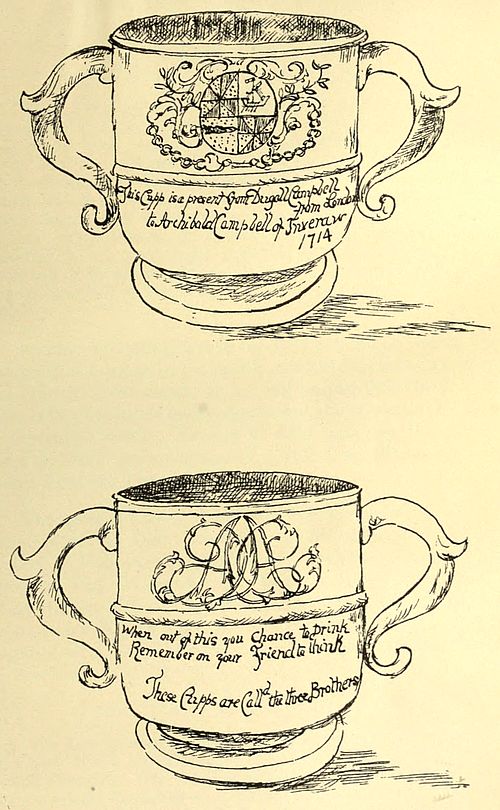 This Cupp is a present from Dugall Campbell
from London
to Archibald Campbell of Inveraw
1714
When out of this you Chance to Drink
Remember on your Friend to think
These Cupps are Calld the three Brothers